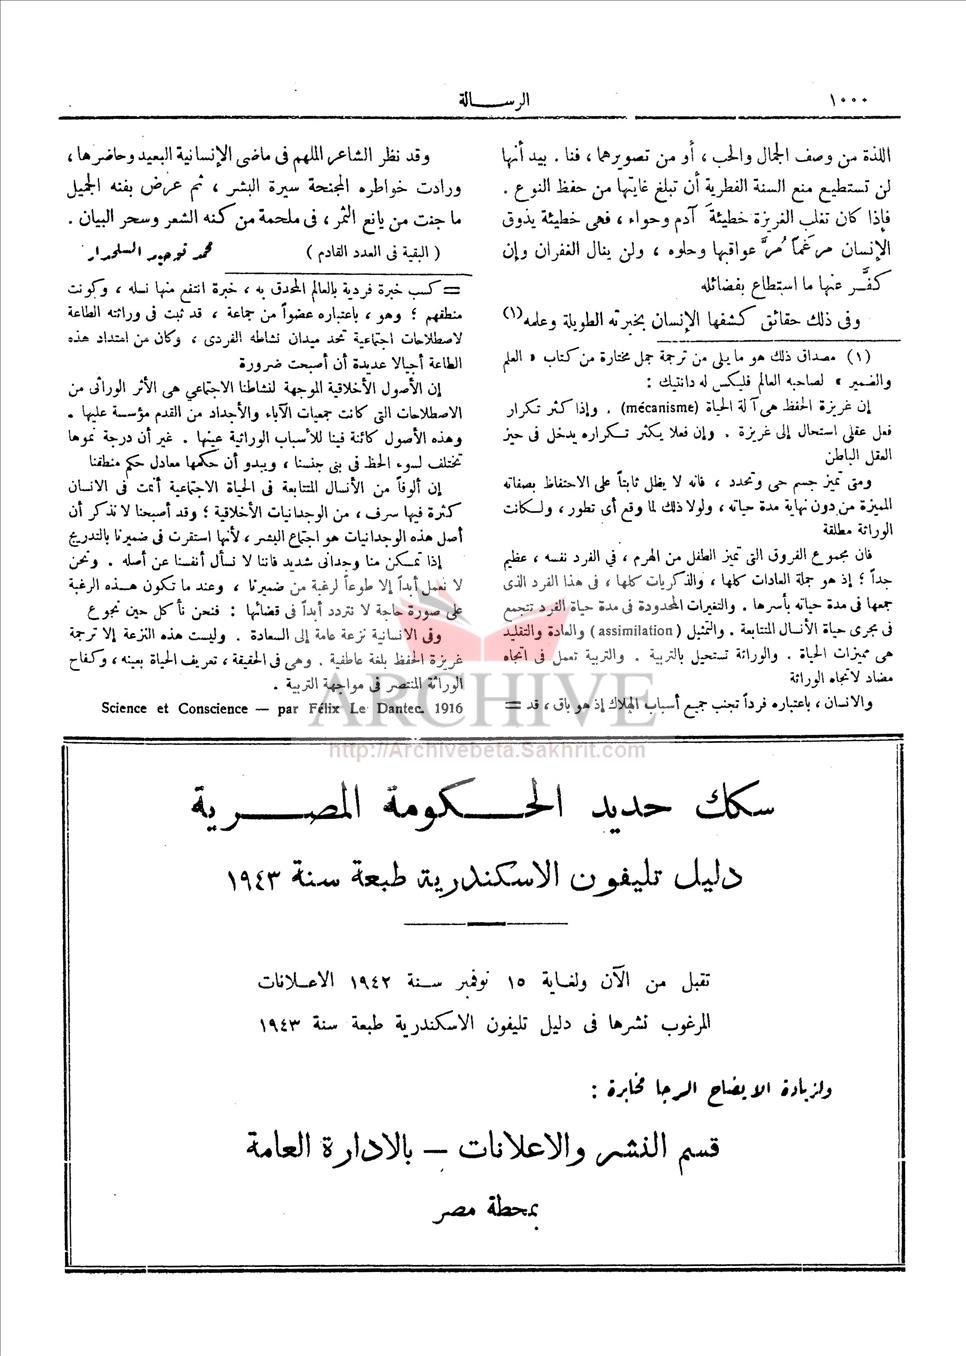 ١٠٠٠
الرســـالة
اللذة من وصف الجمال والحب ، أو من تصويرهما ، فنا . بيد أنها
لن تستطيع منع السنة الفطرية أن تبلغ غايتها من حفظ النوع .
فإذا كان تغلب الغريزة خطيئة آدم وحواء ، فهى خطيئة يذوق
الإنسان مرغماً مُرَّ عواقبها وحلوه ، ولن ينال الغفران وإن
كفَّر عنها ما استطاع بفضائله
وفى ذلك حقائق كشفها الإنسان بخبرته الطويلة وعلمه (١)
(١) مصداق ذلك هو ما يلى من ترجمة جمل مختارة من كتاب « العلم
والضمير » لصاحبه العالم فليكس له دانتيك :
إن غريزة الحفظ هى آلة الحياة (mécanisme) . وإذا كثر تكرار
فعل عقلى استحال إلى غريزة . وإن فعلا يكثر تكراره يدخل فى حيز
العقل الباطن
ومتى تميز جسم حى وتحدد ، فانه لا يظل ثابتاً على الاحتفاظ بصفاته
المميزة من دون نهاية مدة حياته ، ولولا ذلك لما وقع أى تطور ، ولكانت
الوراثة مطلقة
فان مجموع الفروق التى تميز الطفل من الهرم ، فى الفرد نفسه ، عظيم
جداً ؛ إذ هو جملة العادات كلها ، والذكريات كلها ، فى هذا الفرد الذى
جمعها فى مدة حياته بأسرها . والتغيرات المحدودة فى مدة حياة الفرد تتجمع
فى مجرى حياة الأنسال المتتابعة . والتمثيل (assimilation) والعادة والتقليد
هى مميزات الحياة . والوراثة تستحيل بالتربية . والتربية تعمل فى اتجاه
مضاد لاتجاه الوراثة
والانسان ، باعتباره فرداً تجنب جميع أسباب الهلاك إذ هو باق ، قد =
وقد نظر الشاعر الملهم فى ماضى الإنسانية البعيد وحاضرها ،
ورادت خواطره المجنحة سيرة البشر ، ثم عرض بفنه الجميل
ما جنت من يانع الثمر ، فى ملحمة من كنه الشعر وسحر البيان .
( البقية فى العدد القادم ) محمد توحيد السلحدار
= كسب خبرة فردية بالعالم المحدق به ، خبرة انتفع منها نسله ، وكونت
منطقهم ؛ وهو ، باعتباره عضواً من جماعة ، قد ثبت فى وراثته الطاعة
لاصطلاحات اجتماعية تحد ميدان نشاطه الفردى ، وكان من امتداد هذه
الطاعة أجيالا عديدة أن أصبحت ضرورة
إن الأصول الأخلاقية الموجهة لنشاطنا الاجتماعى هى الأثر الوراثى من
الاصطلاحات التى كانت جمعيات الآباء والأجداد من القدم مؤسسة عليها .
وهذه الأصول كائنة فينا للأسباب الوراثية عينها . غير أن درجة نموها
تختلف لسوء الحظ فى بنى جنسنا ، ويبدو أن حكمها معادل حكم منطقنا
إن ألوفاً من الأنسال المتتابعة فى الحياة الاجتماعية أنمت فى الانسان
كثرة فيها سرف ، من الوجدانيات الأخلاقية ؛ وقد أصبحنا لا نذكر أن
أصل هذه الوجدانيات هو اجتماع البشر ، لأنها استقرت فى ضميرنا بالتدريج
إذا تمكن منا وجدانى شديد فاننا لا نسأل أنفسنا عن أصله . ونحن
لا نعمل أبداً إلا طوعاً لرغبة من ضميرنا ، وعند ما تكون هذه الرغبة
على صورة حاجة لا نتردد أبداً فى قضائها : فنحن نأكل حين نجوع
وفى الانسانية نزعة عامة إلى السعادة . وليست هذه النزعة إلا ترجمة
غريزة الحفظ بلغة عاطفية . وهى فى الحقيقة ، تعريف الحياة بعينه ، وكفاح
الوراثة المنتصر فى مواجهة التربية .
Science et Conscience — par Félix Le Dantec. 1916
ARCHIVE
http://Archivebeta.Sakhrit.com
سكك حديد الحـــكومة المصــــرية
دليل تليفون الاسكندرية طبعة سنة ١٩٤٣
تقبل من الآن ولغاية ١٥ نوفمبر سنة ١٩٤٢ الاعلانات
المرغوب نشرها فى دليل تليفون الاسكندرية طبعة سنة ١٩٤٣
ولزيادة الايضاح الرجا مخابرة :
قسم النشر والاعلانات — بالادارة العامة
بمحطة مصر